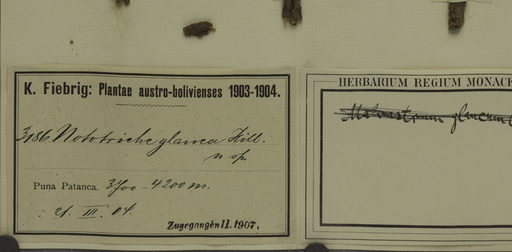 K. Fiebrig: Plantae austro-bolivienses 1903-1904.
3186 Nototriche glauca Hill.
n sp.
Puna Patanca, 3700 - 4200 m.
21. III. 04.
Zugegangen II. 1907.
HERBARIUM REGIUM MONACE
Malvastrum glaucum